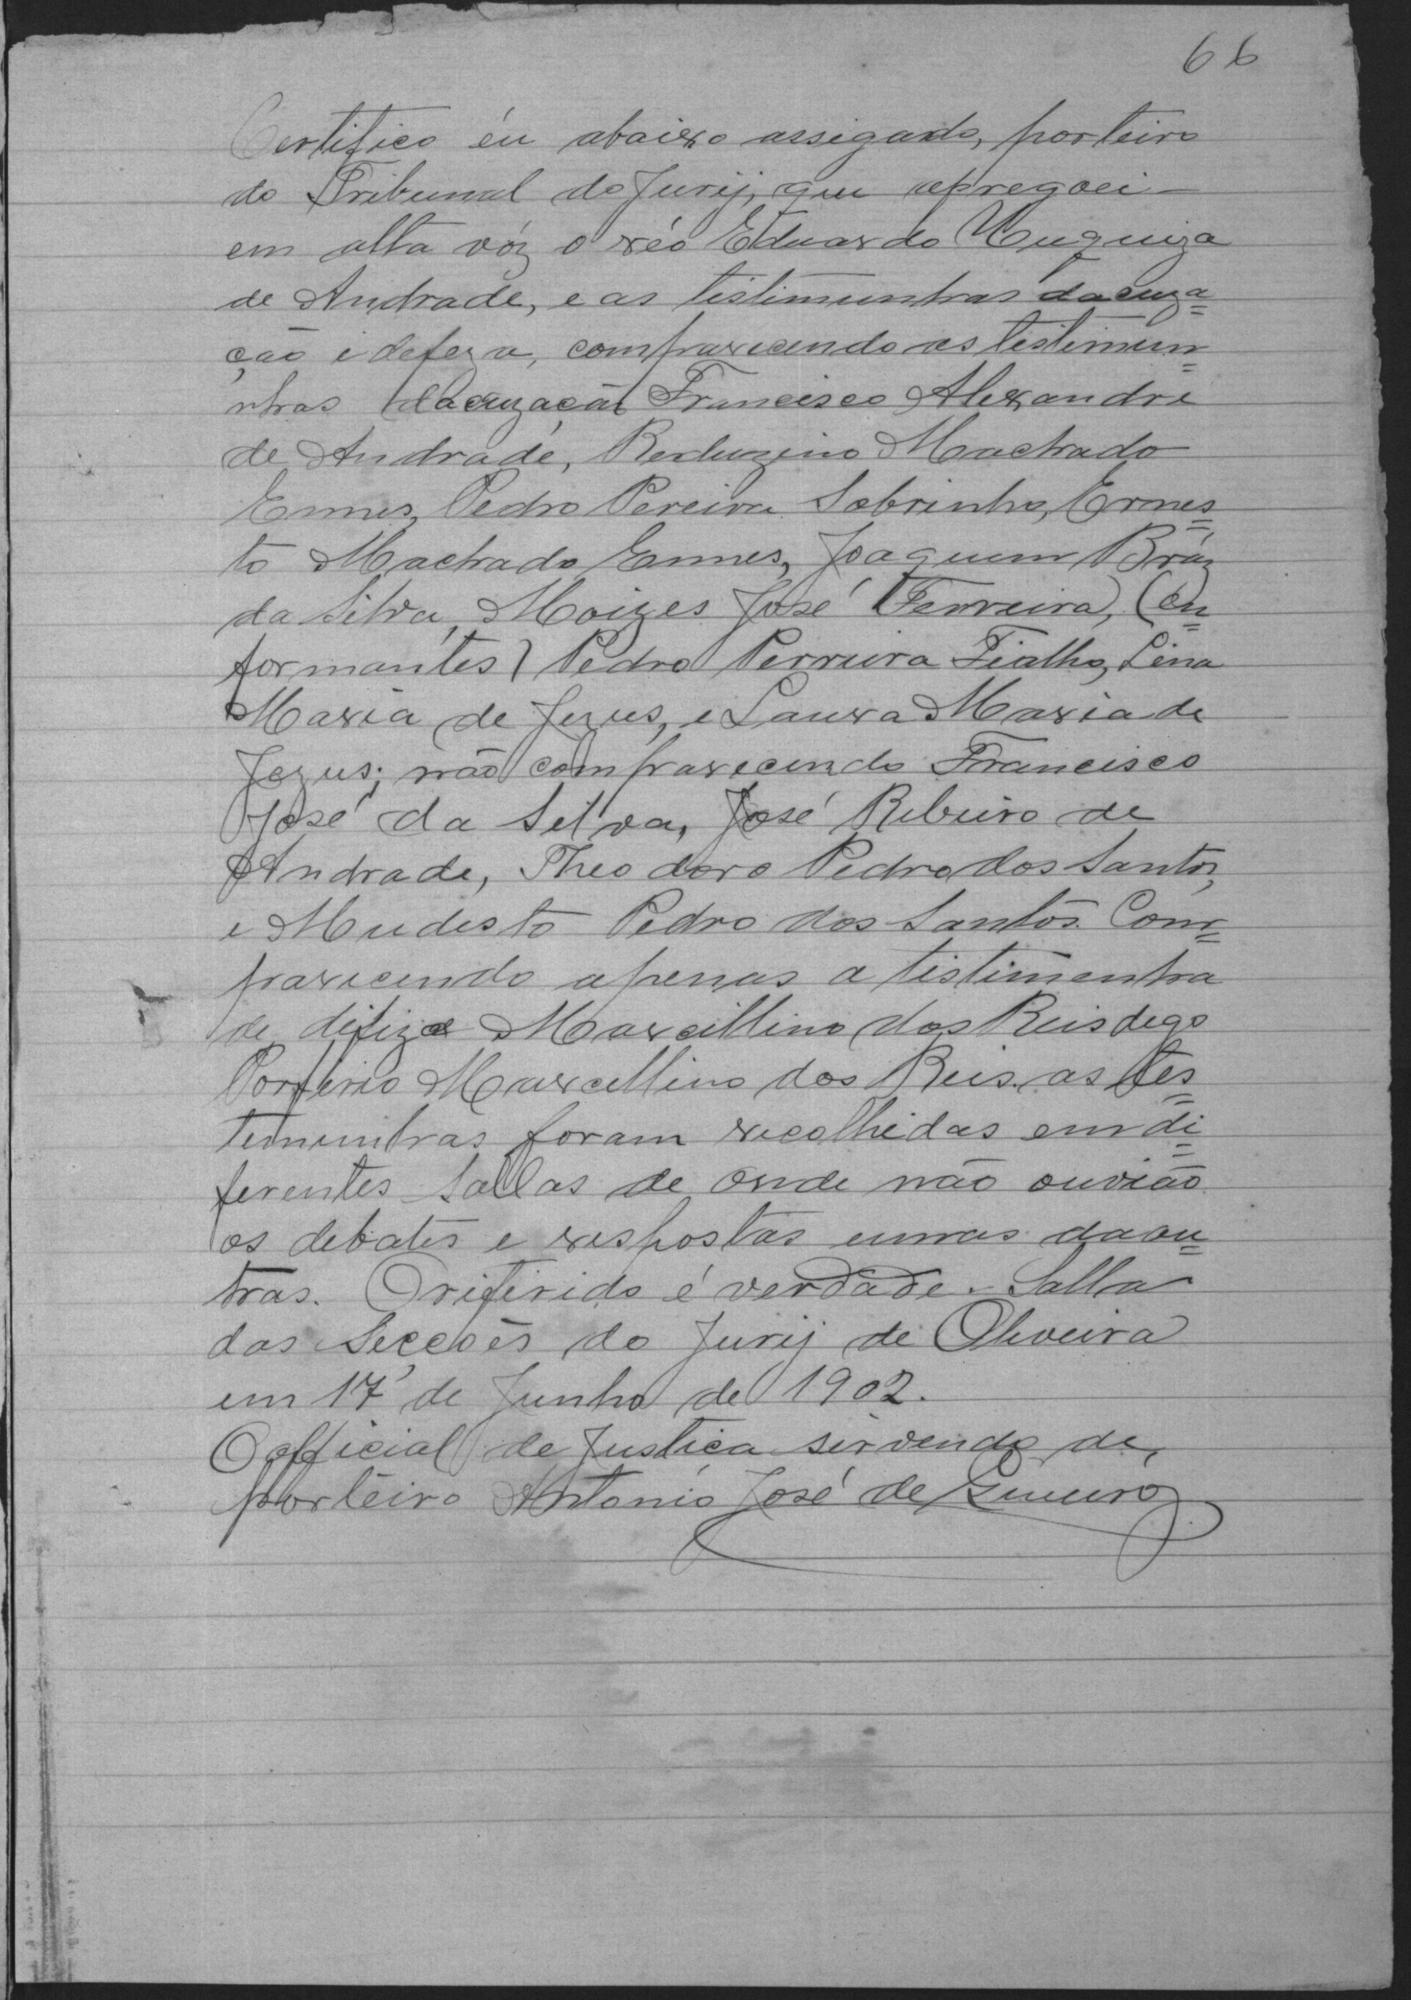 66
Certifico éu abaixo assigado, porteiro
do Tribunal do Jury, que apregoei
em alta vóz o réo Eduardo
de Andrade, e as testimunhas dacuza=
ção e defeza, comparecendo as testimun=
nhas dacuzação Francisco Alexandre
de Andrade, Machado
Ennes, Pedro Pereira Sobrinho, Ernes=
to Machado Ennes, Joaquim Bráz
da Silva, Moizes José Ferreira, (en=
formantes) Pedro Perreira Fialho, Lina
Maria de Jezus, e Laura Maria de
Jezus; não comparecendo Francisco
José da Silva, José Ribeiro de
Andrade, Theodoro Pedro dos Santos,
e Mudesto Pedro dos Santos. Com=
parecendo apenas a testimunha
de defeza Marcillino dos Reis dego
Porfirio Marcellino dos Reis. as tes=
temunhas foram recolhidas em di=
ferentes Sallas de onde não ouvião
os debates e respostas umas daou=
tras. O referido é verdade. Salla
das Secções do Jury de Oliveira
em 17 de Junho de 1902.
O official de Justiça sirvendo de
porteiro Antonio José de